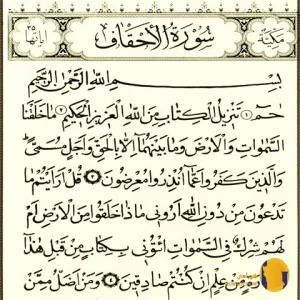 مكية سورة الأحقاف آياتها ٣٥
بسم الله الرحمن الرحيم
حم ١ تنزيل الكتاب من الله العزيز الحكيم ٢ ما خلقنا
السموات والأرض وما بينهما إلا بالحق وأجل مسمى
والذين كفروا عما أنذروا معرضون ٣ قل أرأيتم ما
تدعون من دون الله أروني ماذا خلقوا من الأرض أم
لهم شرك في السموات ائتوني بكتاب من قبل هذا
من علم إن كنتم صادقين ٤ ومن أضل ممن